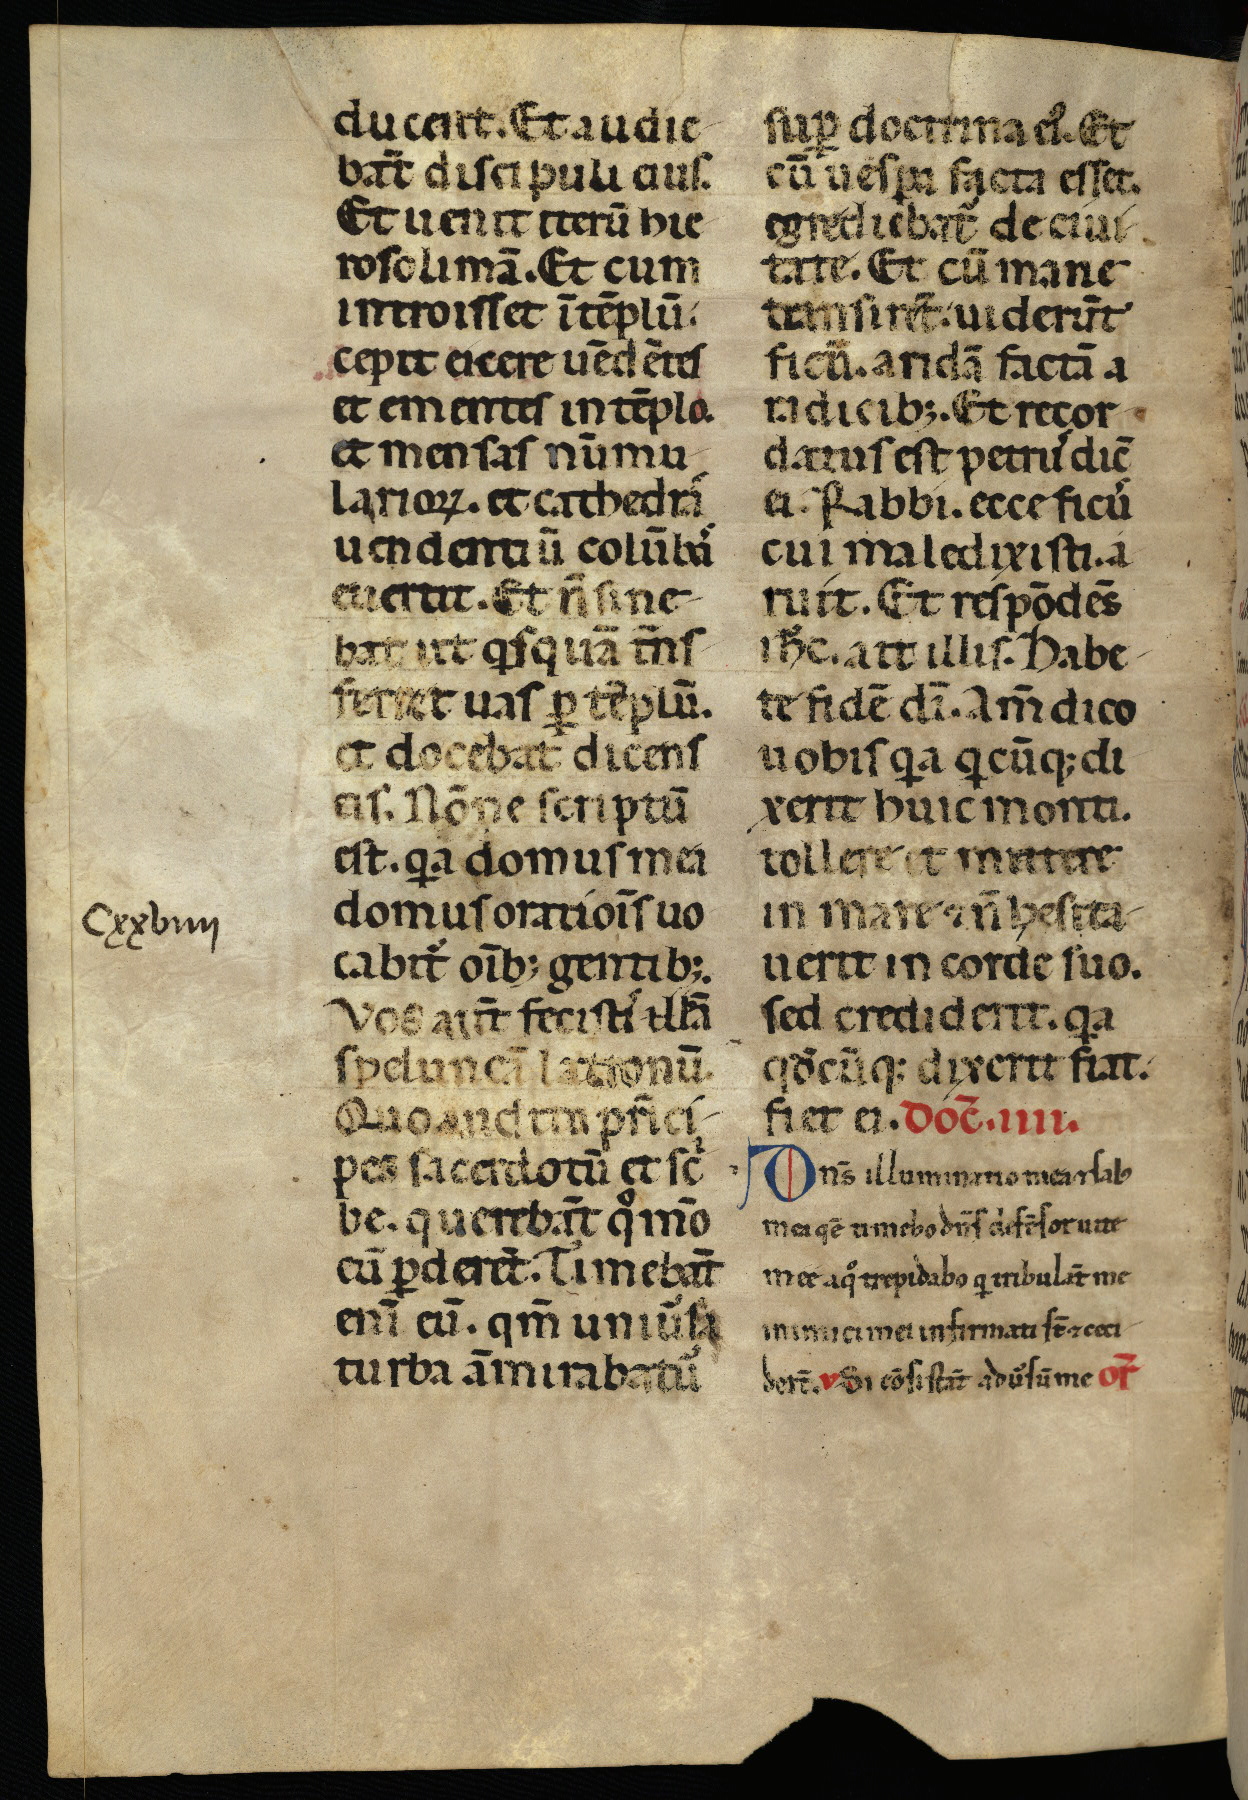 ducent. Et audie
bat̄ discipuli eius.
Et uenit iterū hie
rosolimā. Et cum
introisset ī tēplū.
cepit eicere uēdētes
et ementes in tēplo.
et mensas nūmu
larioꝝ. et cathedrā
uendentiū colūbaꝝ
euertit. Et n̄ sine
bat ut qisquā trāns
ferret uas ꝑ tēplū.
et docebat dicens
eis. Nōne scriptū
est. qꝛa domus mea
domus oratiōis uo
cabit᷑ oīb; gentib;.
Vos aut̄ fecistis illā
speluncā latronū.
Quo audito prīci
pes sacerdotū et sc̄
be. querebāt qͦmō
eū ꝑderēt. Timebāt
eni᷑ eū. qm̄ uniūsa
turba āmirabatu᷑
Cxxbiiii
suꝑ doctrina eiꝰ. Et
cū uespa facta esset.
egrediebat᷑ de ciui
tate. Et cū mane
transirēt. uiderūt
ficū. aridā factā a
radicib;. Et recor
datus est petrus dic̄
ei. Rabbi. ecce ficus
cui maledixisti. a
ruit. Et respōdēs
ih̄c. ait illis. Habe
te fidē dī. Am̄ dico
uobis qꝛa qicūq; di
xerit huic monti.
tollere et mittere
in mare ⁊ n̄ hesita
uerit in corde suo.
sed crediderit. qꝛa
qdͦcūq; dixerit fiat.
fiet ei. Doc̄. iiii.
Dn̄s illuminatio mea ⁊ salus
mea quē timebo dn̄s defēsor uite
mee a qͦ trepidabo qi tribulāt me
inimici mei infirmati st̄ ⁊ ceci
derūt. v Si cōsistāt adūsū me of̄